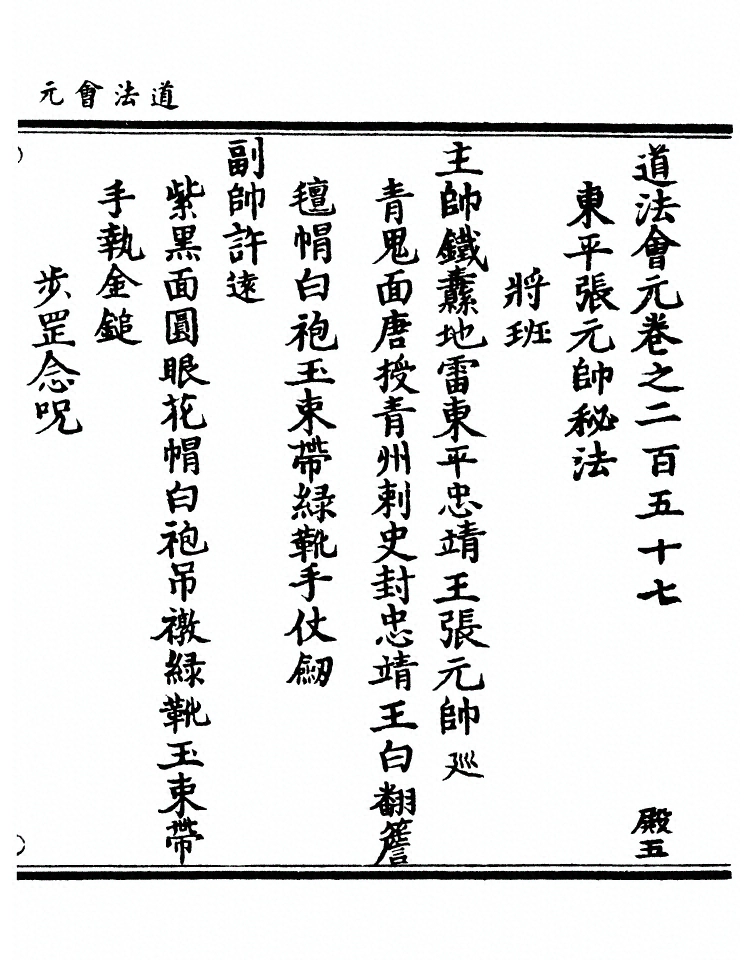 道法會元
道法會元卷之二百五十七
殿五
東平張元帥秘法
將班
主帥鐵纛地雷東平忠靖王張元帥巡
青鬼面唐授青州刺史封忠靖王白翻簷
氊帽白袍玉束帶綠靴手仗劒
副帥許遠
紫黑面圓眼花帽白袍吊襒綠靴玉束帶
手執金鎚
步罡念呪